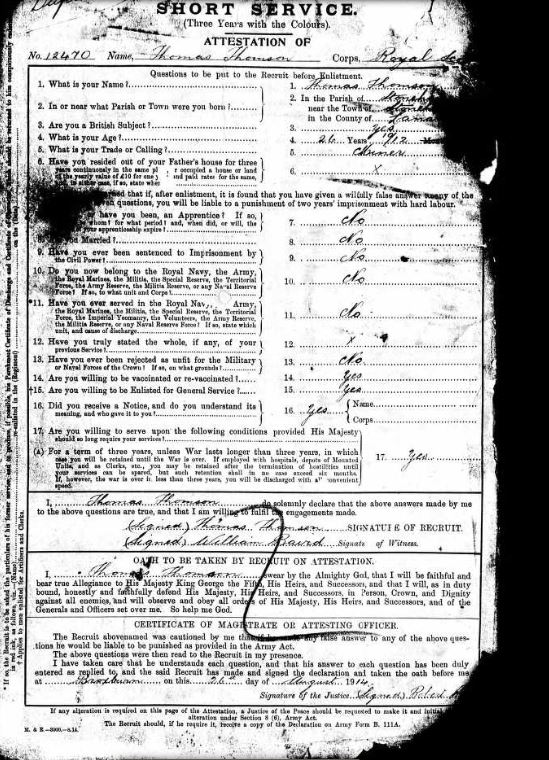 SHORT SERVICE.
(Three Years with the Colours).
ATTESTATION OF
No. 12470 Name, Thomas Thomson Corps, Royal
Questions to be put to the Recruit before Enlistment.
1. What is your Name? 1. Thomas Thomson
2. In or near what Parish or Town were you born? 2. In the Parish of
near the Town of
in the County of
3. Are you a British Subject? 3. Yes
4. What is your Age? 4. 26 Years
5. What is your Trade or Calling? 5. Miner
6. Have you resided out of your Father's house for three
years continuously in the same occupied a house or land
of the yearly value of £10 for one and paid rates for the same,
in either case. If so, state 6. x
that if, after enlistment, it is found that you have given a wilfully false answer any of the
questions, you will be liable to a punishment of two years' imprisonment with hard labour.
have you been, an Apprentice? If so,
whom? for what period? and, when did, or will, the
apprenticeship expire? 7. No
Married? 8. No
9. Have you ever been sentenced to Imprisonment by
the Civil Power? 9. No
10. Do you now belong to the Royal Navy, the Army,
the Royal Marines, the Militia, the Special Reserve, the Territorial
Force, the Army Reserve, the Militia Reserve, or any Naval Reserve
Force? If so, to what unit and Corps? 10. No
*11. Have you ever served in the Royal Navy, Army,
the Royal Marines, the Militia, the Special Reserve, the Territorial
Force, the Imperial Yeomanry, the Volunteers, the Army Reserve,
the Militia Reserve, or any Naval Reserve Force? If so, state which
unit, and cause of discharge. 11. No
12. Have you truly stated the whole, if any, of your
previous Service? 12. x
13. Have you ever been rejected as unfit for the Military
or Naval Forces of the Crown? If so, on what grounds? 13. No
14. Are you willing to be vaccinated or re-vaccinated? 14. Yes
†15. Are you willing to be Enlisted for General Service? 15. Yes
16. Did you receive a Notice, and do you understand its
meaning, and who gave it to you? 16. Yes Name
Corps
17. Are you willing to serve upon the following conditions provided His Majesty
should so long require your services?
(A) For a term of three years, unless War lasts longer than three years, in which
case you will be retained until the War is over. If employed with hospitals, depots of Mounted
Units, and as Clerks, etc., you may be retained after the termination of hostilities until
your services can be spared, but such retention shall in no case exceed six months.
If, however, the war is over in less than three years, you will be discharged with all convenient
speed. 17. Yes
I, Thomas Thomson do solemnly declare that the above answers made by me
to the above questions are true, and that I am willing to fulfil the engagements made.
(Signed) Thomas Thomson SIGNATURE OF RECRUIT.
(Signed) William Baird Signature of Witness.
OATH TO BE TAKEN BY RECRUIT ON ATTESTATION.
I, Thomas Thomson swear by Almighty God, that I will be faithful and
bear true Allegiance to His Majesty King George the Fifth, His Heirs, and Successors, and that I will, as in duty
bound, honestly and faithfully defend His Majesty, His Heirs, and Successors, in Person, Crown, and Dignity
against all enemies, and will observe and obey all orders of His Majesty, His Heirs, and Successors, and of the
Generals and Officers set over me. So help me God.
CERTIFICATE OF MAGISTRATE OR ATTESTING OFFICER.
The Recruit abovenamed was cautioned by me that if he made any false answer to any of the above ques-
tions he would be liable to be punished as provided in the Army Act.
The above questions were then read to the Recruit in my presence.
I have taken care that he understands each question, and that his answer to each question has been duly
entered as replied to, and the said Recruit has made and signed the declaration and taken the oath before me
at Broxburn on this 26th day of August 1914
Signature of the Justice (Signed)
If any alteration is required on this page of the Attestation, a Justice of the Peace should be requested to make it and initial
alteration under Section 8 (6), Army Act.
The Recruit should, if he require it, receive a copy of the Declaration on Army Form B. 111A.